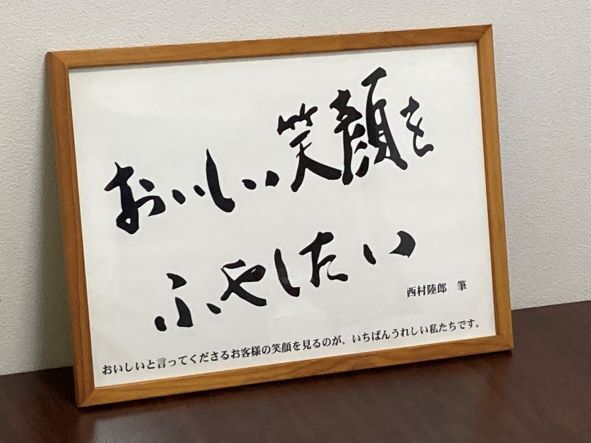 おいしい笑顔を
ふやしたい
西村陸郎 筆
おいしいと言ってくださるお客様の笑顔を見るのが、いちばんうれしい私たちです。